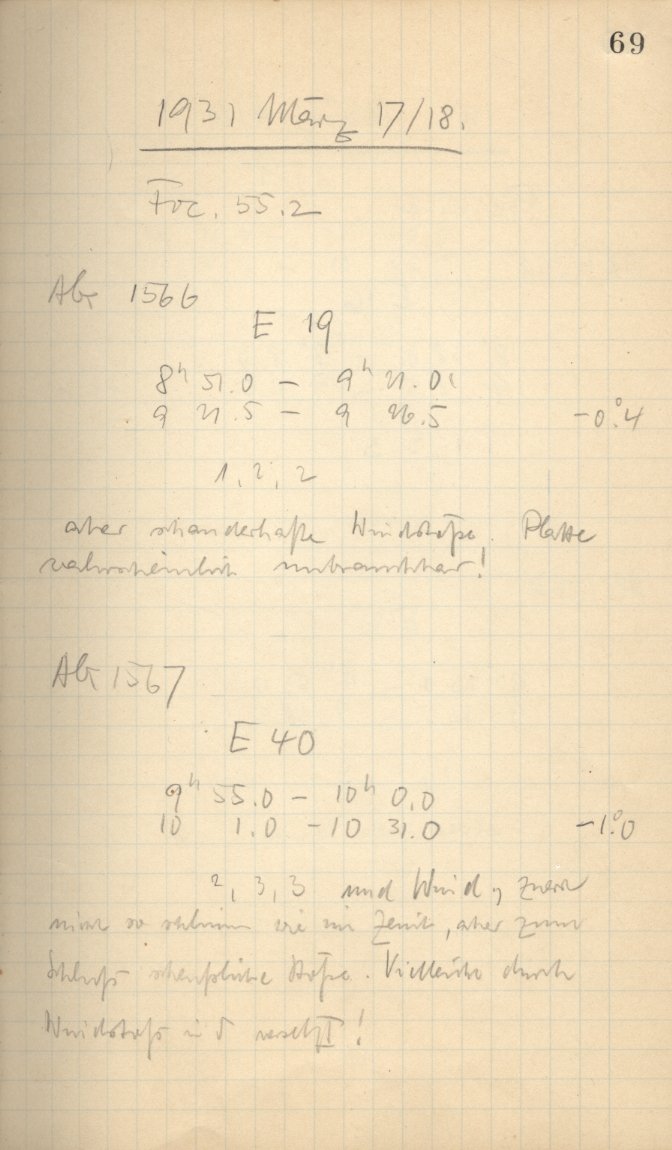 69
1931 März 17/18.
Foc. 55.2
AG 1566
E 19
8ʰ 51.0 – 9ʰ 21.0
9 21.5 – 9 26.5 –0.°4
1, 2, 2
aber schauderhafte Windstöße. Platte
wahrscheinlich unbrauchbar!
AG 1567
E 40
9ʰ 55.0 – 10ʰ 0.0
10 1.0 – 10 31.0 –1.°0
2, 3, 3 und Wind, zuerst
nicht so schlimm wie im Zenit, aber zum
Schluß scheußliche Stöße. Vielleicht durch
Windstoß in δ versetzt!